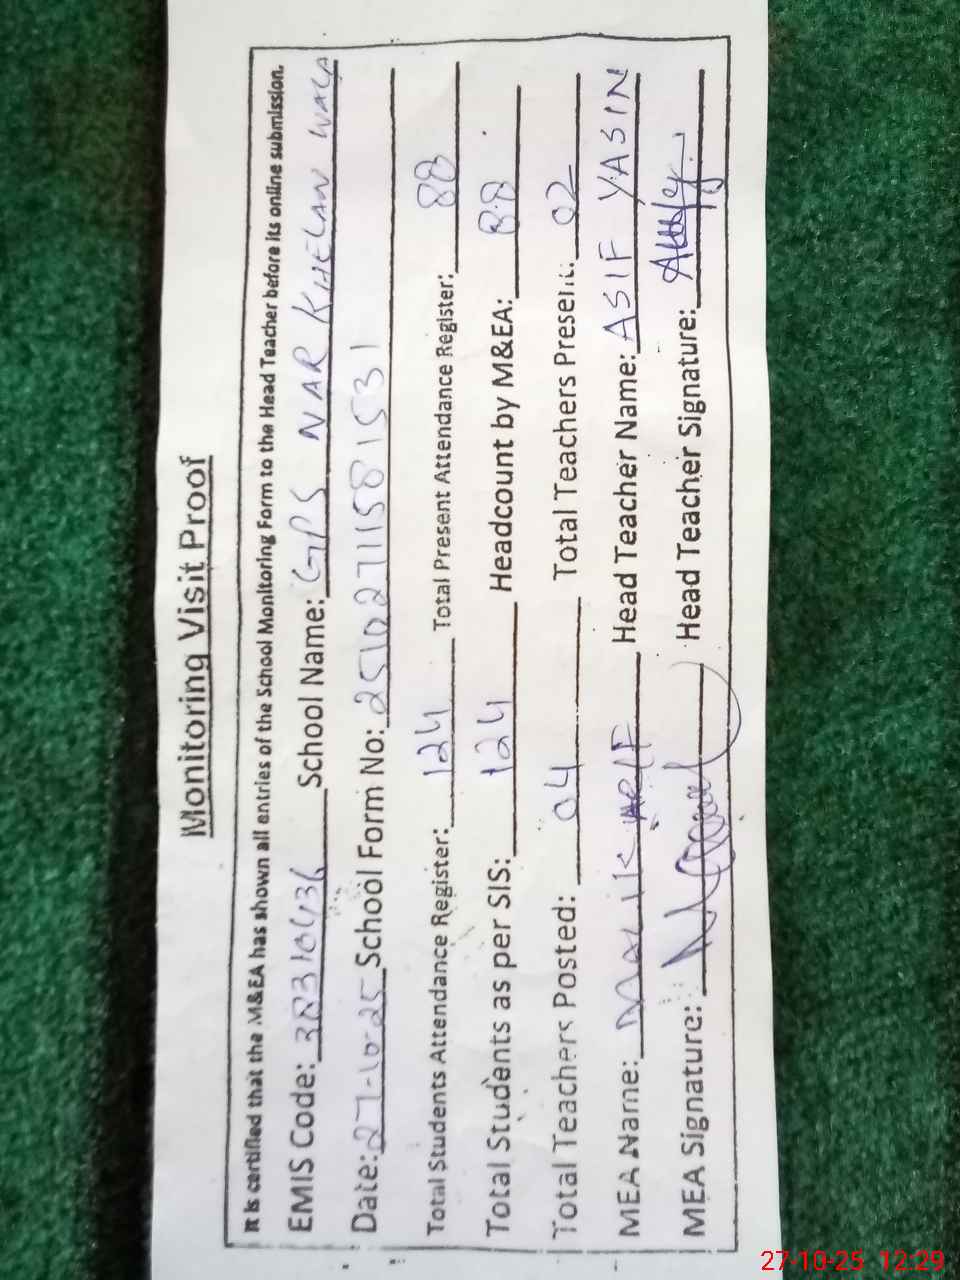 Monitoring Visit Proof
It is certified that the M&EA has shown all entries of the School Monitoring Form to the Head Teacher before its online submission.
EMIS Code: 38310436 School Name: GPS NAR KHELAN WALA
Date: 27-10-25 School Form No: 25102711581531
Total Students Attendance Register: 124 Total Present Attendance Register: 88
Total Students as per SIS: 124 Headcount by M&EA: 88
Total Teachers Posted: 04 Total Teachers Present: 02
MEA Name: MALIK ARIF Head Teacher Name: ASIF YASIN
MEA Signature: Head Teacher Signature:
27-10-25 12:29